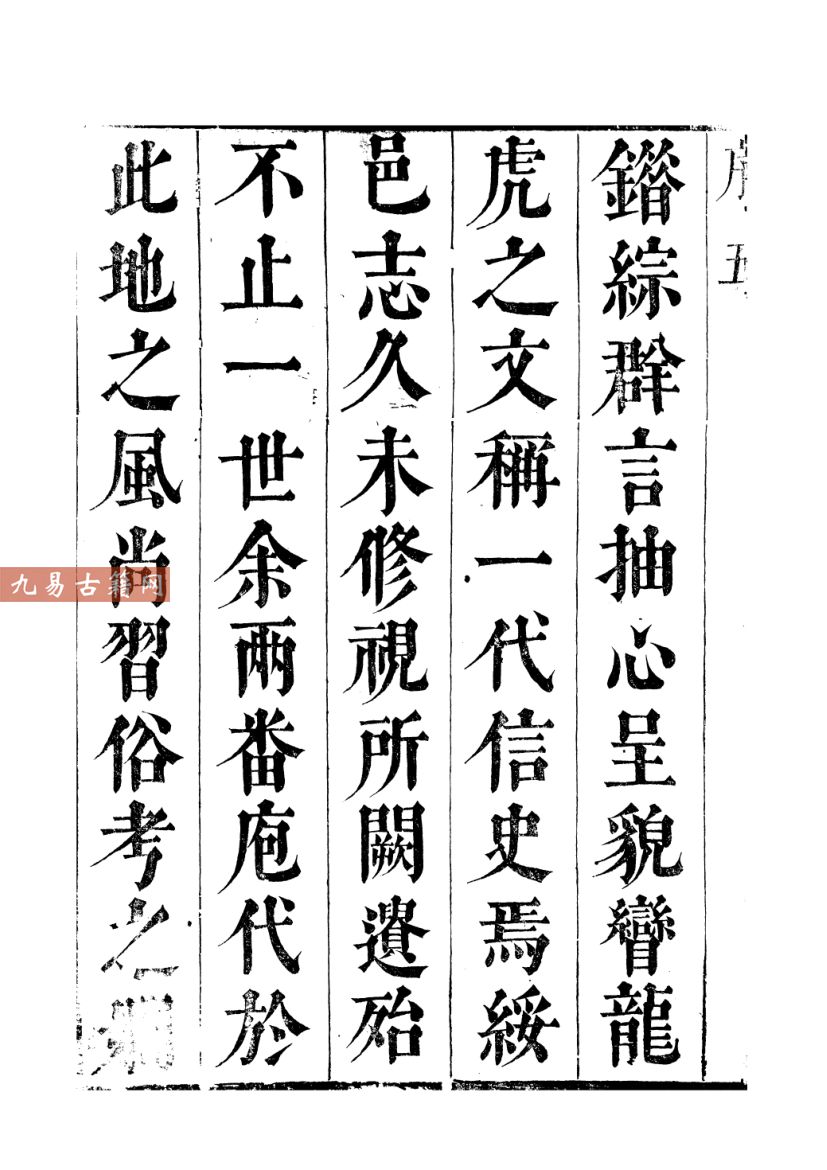 序五
鐕綜群言抽心呈貌矕龍
虎之文稱一代信史焉綏
邑志久未修視所闕遺殆
不止一世余兩番庖代於
此地之風尚習俗考之
九易古籍网